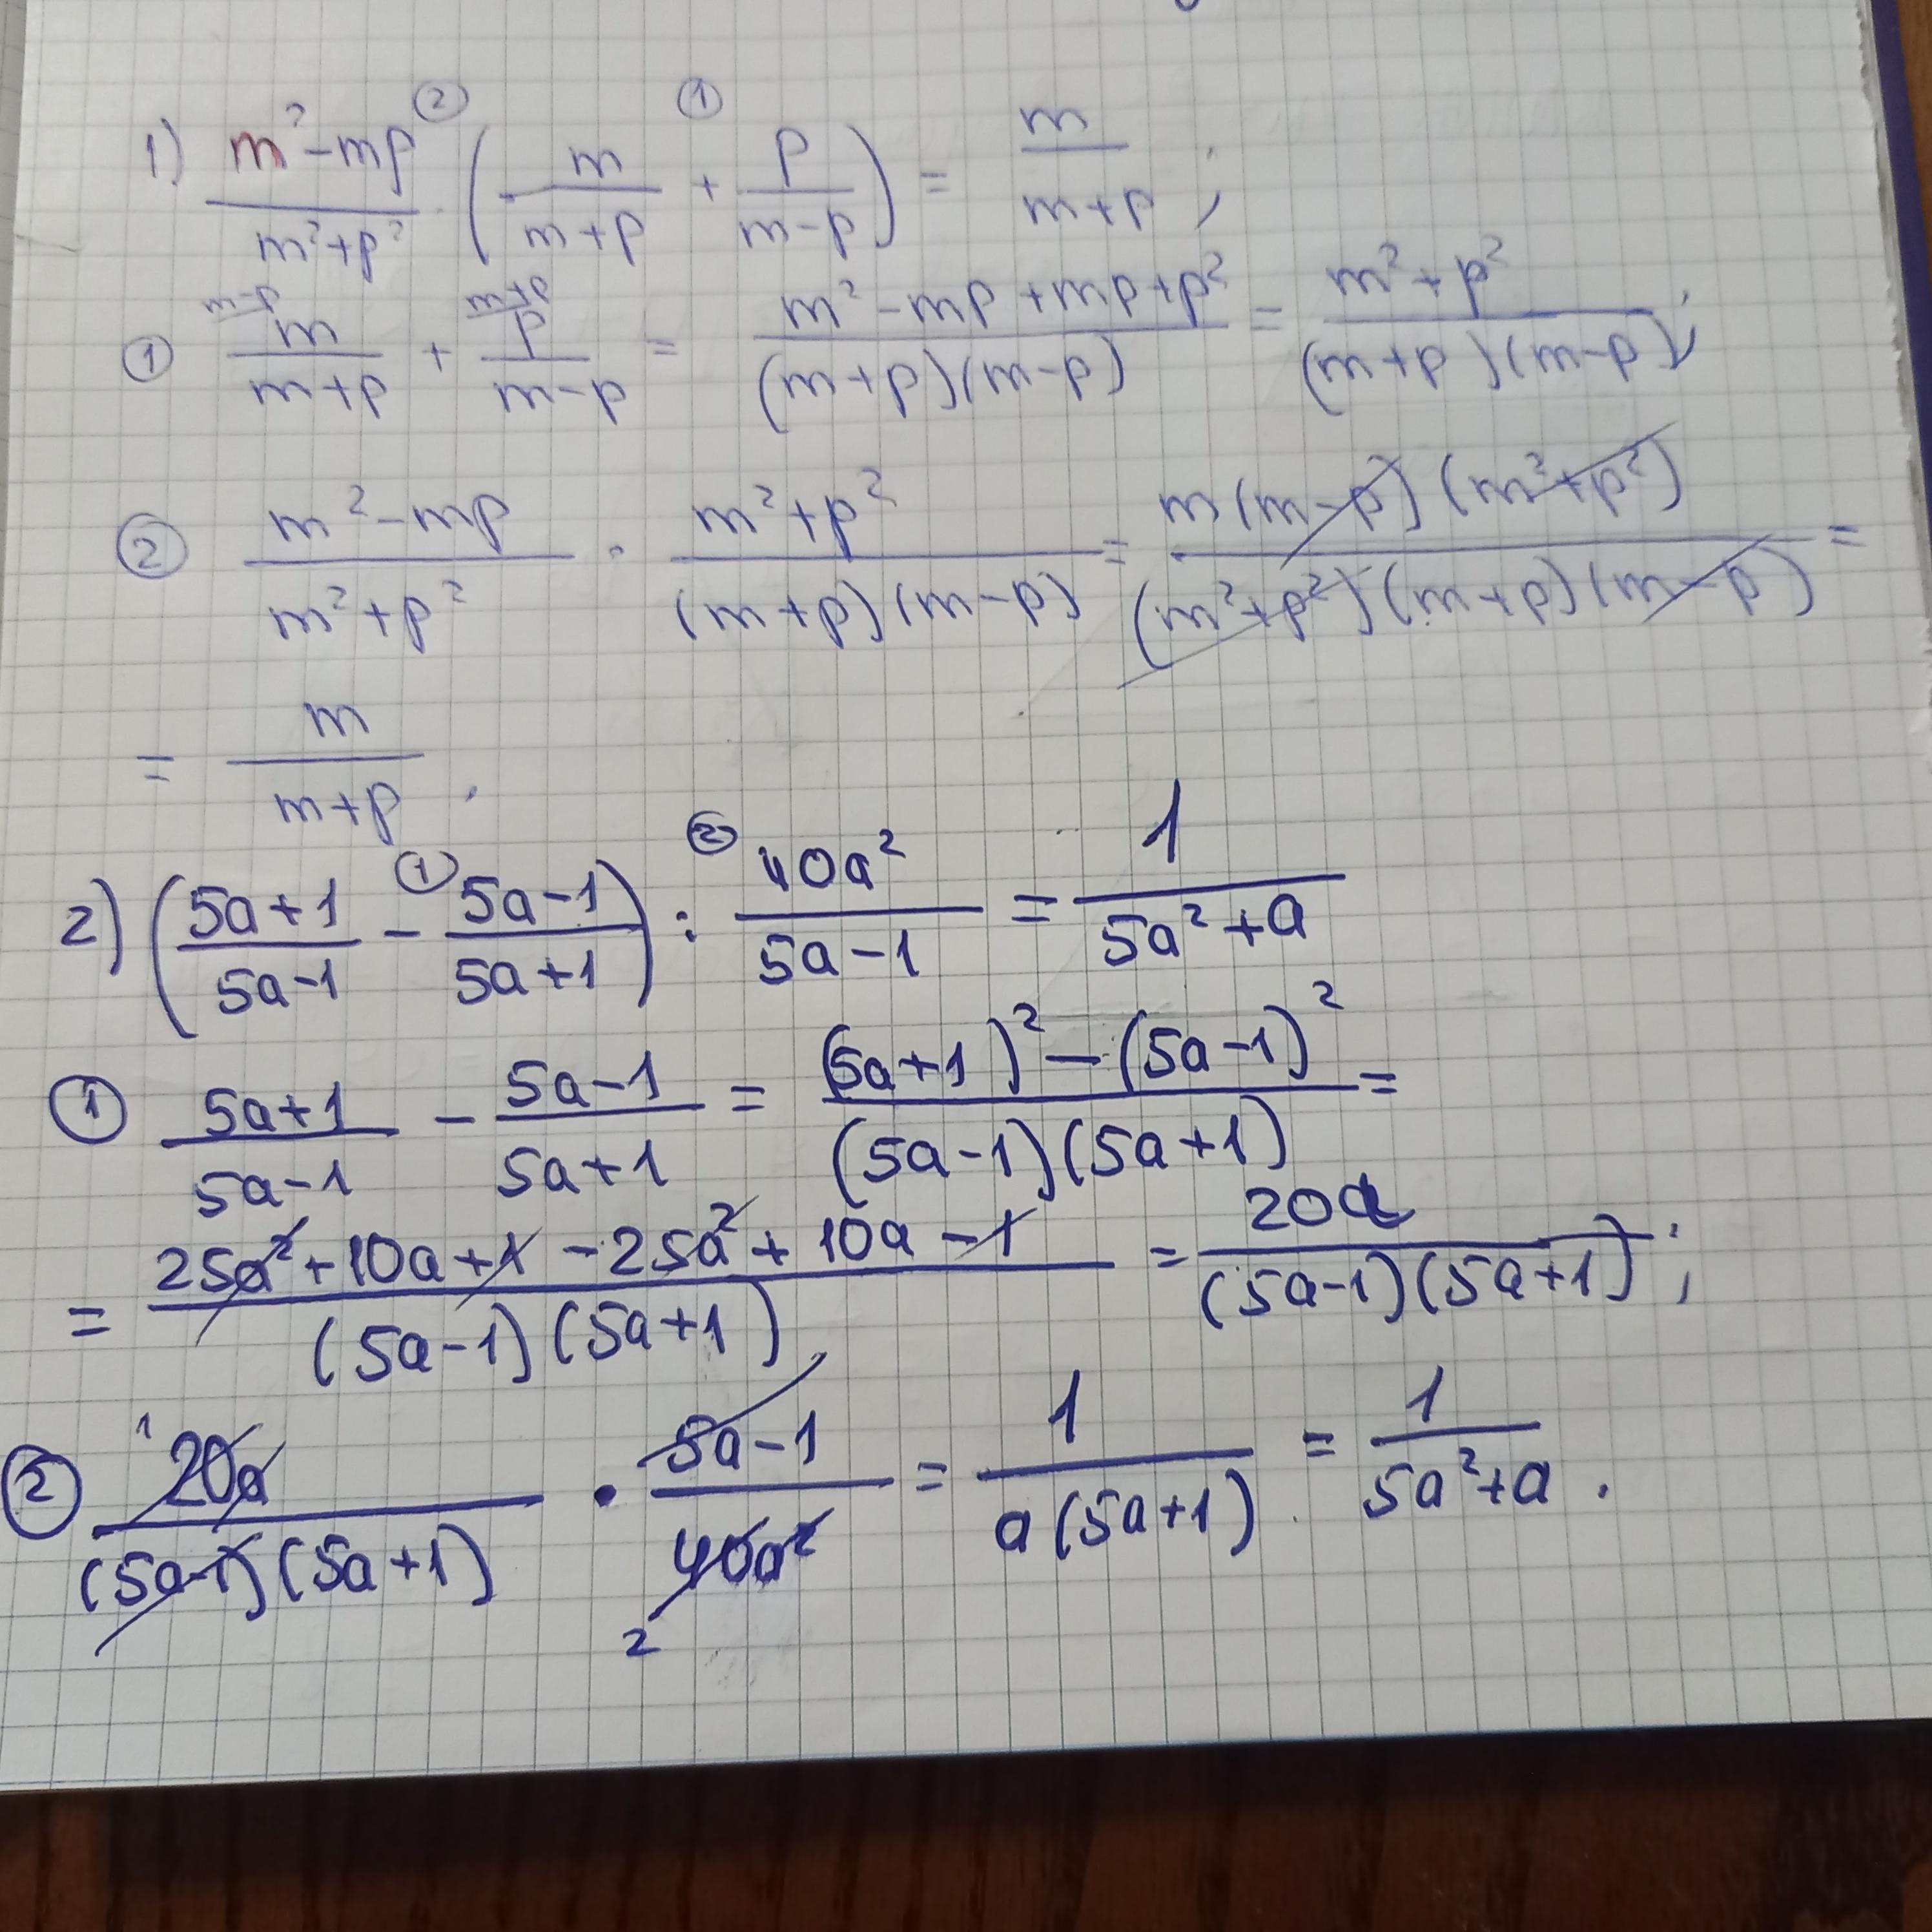 1) (m² - mp)/(m² + p²) · (m/(m+p) + p/(m-p)) = m/(m+p) ;
① m/(m+p) + p/(m-p) = (m² - mp + mp + p²)/((m+p)(m-p)) = (m² + p²)/((m+p)(m-p)) ;
② (m² - mp)/(m² + p²) · (m² + p²)/((m+p)(m-p)) = (m(m-p)(m²+p²))/((m²+p²)(m+p)(m-p)) =
= m/(m+p) .
2) ((5a+1)/(5a-1) - (5a-1)/(5a+1)) : 40a²/(5a-1) = 1/(5a²+a)
① (5a+1)/(5a-1) - (5a-1)/(5a+1) = ((5a+1)² - (5a-1)²)/((5a-1)(5a+1)) =
= (25a² + 10a + 1 - 25a² + 10a - 1)/((5a-1)(5a+1)) = 20a/((5a-1)(5a+1)) ;
② 20a/((5a-1)(5a+1)) · (5a-1)/40a² = 1/(a(5a+1)) = 1/(5a²+a) .